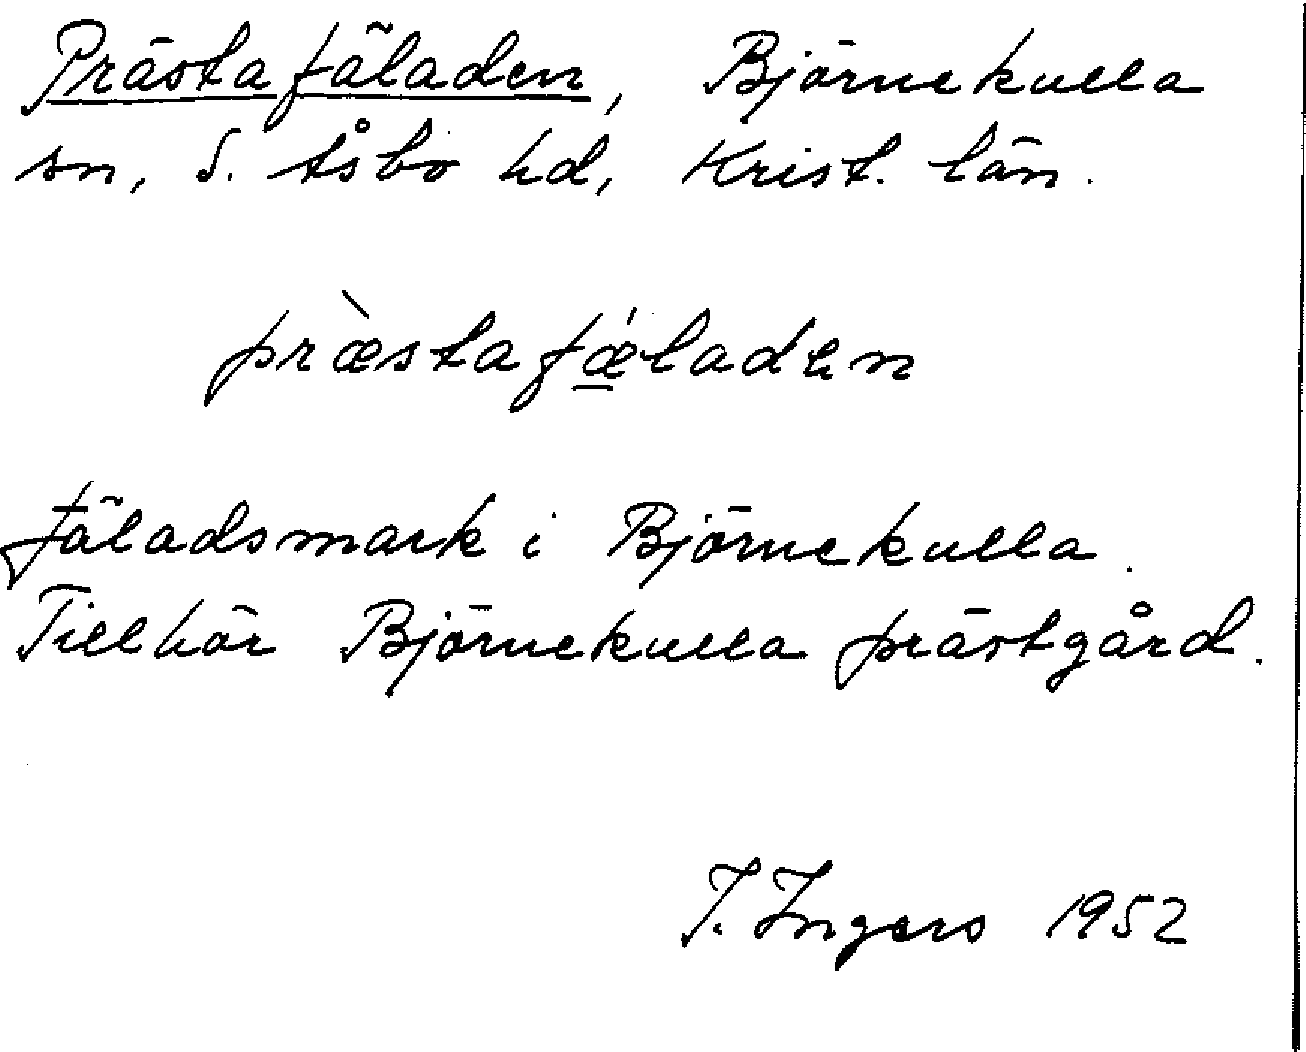 Prästafäladen, Björnekulla
sn, S. Åsbo hd, Krist. län.
præ̀stafǽladen
Fäladsmark i Björnekulla.
Tillhör Björnekulla prästgård.
I. Ingers 1952